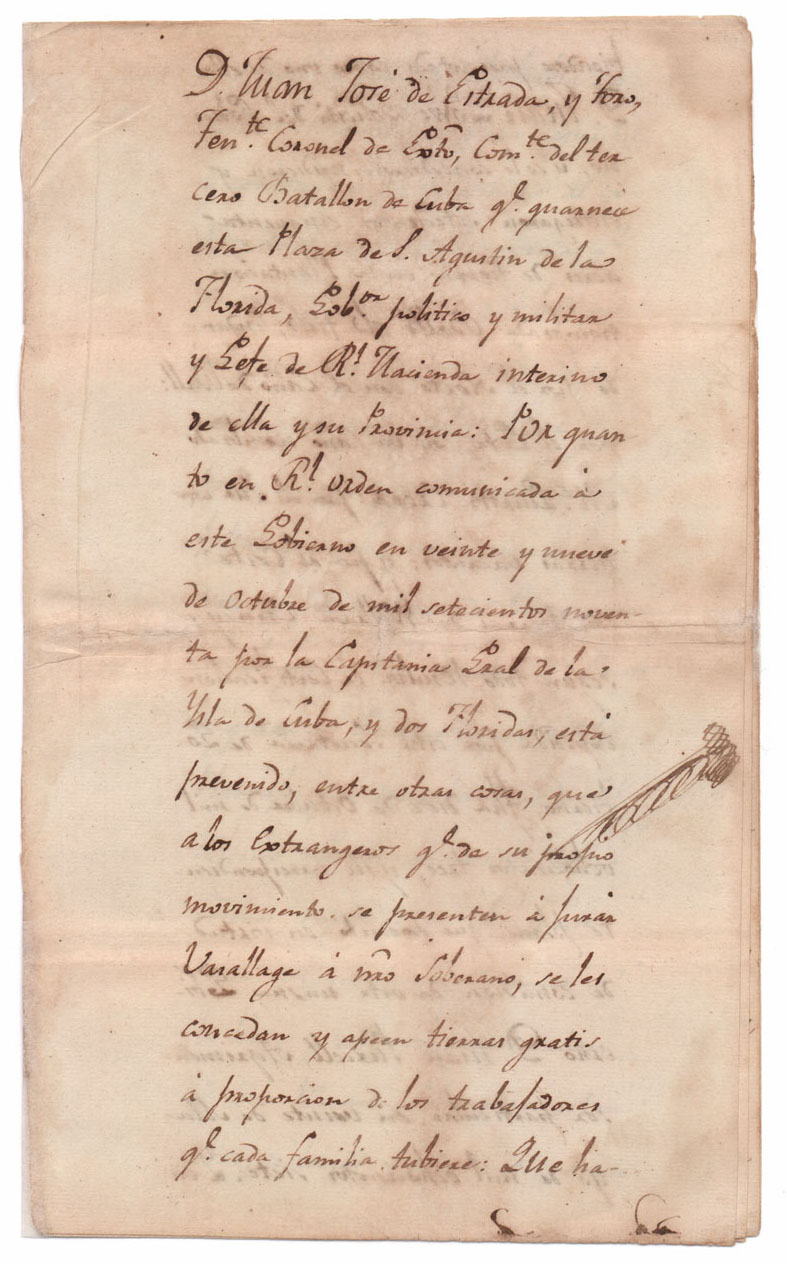 D. Juan José de Estrada, y Toro,
Ten.te Coronel de Exto, Com.te del ter
cero Batallon de Cuba q.e guarnece
esta Plaza de S. Agustin de la
Florida, Gob.or politico y militar
y Gefe de R.l Hacienda interino
de ella y su Provincia: Por quan
to en R.l orden comunicada à
este Gobierno en veinte y nueve
de Octubre de mil setecientos noven-
ta por la Capitania Gral de la
Ysla de Cuba, y dos Floridas, está
prevenido, entre otras cosas, que
a los Extrangeros q.e de su propio
movimiento se presenten à jurár
Vasallage à nro Soberano, se les
concedan y apeen tierras gratis
à proporcion de los trabajadores
q.e cada familia tubiere: Que ha-